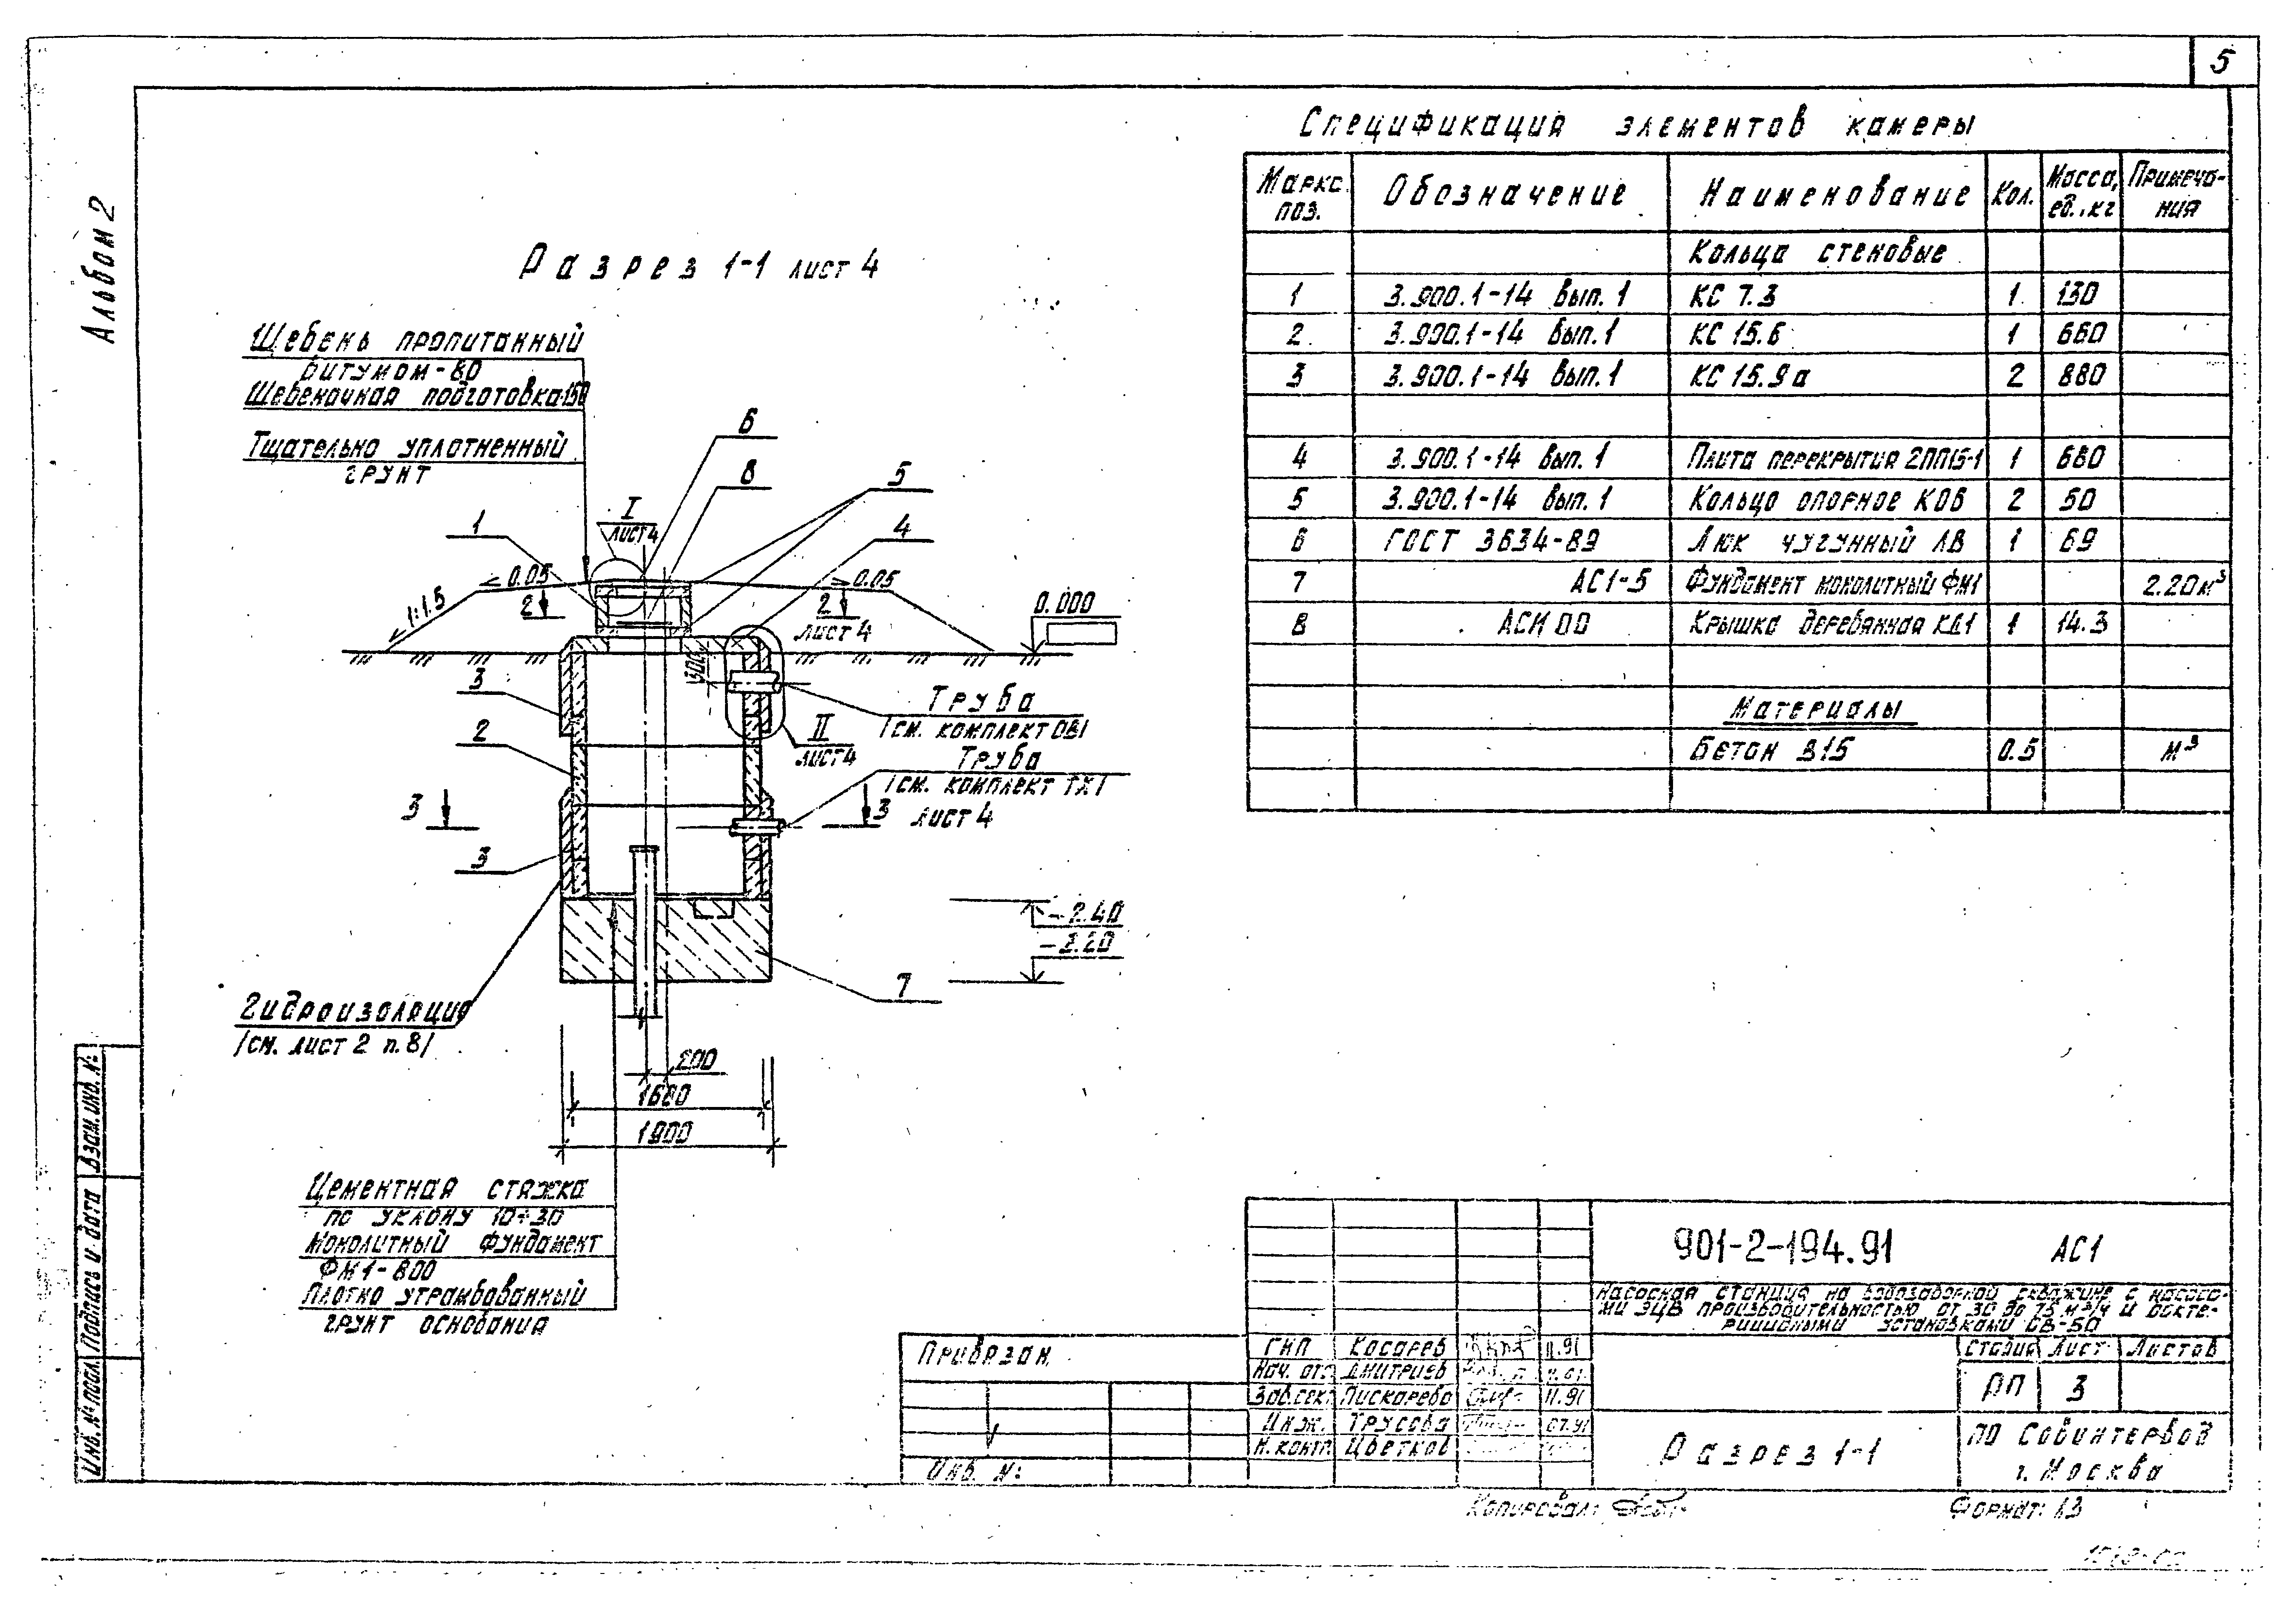 5
Альбом 2
Разрез 1-1 лист 4
Щебень пропитанный
битумом-80
Щебеночная подготовка-150
Тщательно уплотненный
грунт
6
8
5
4
1
I
лист 4
0.05
0.05
1:1.5
2
2
лист 4
0.000
300
3
Труба
/см. комплект ОВ/
II
лист 4
2
Труба
/см. комплект ТХ/
3
3
лист 4
3
-2.40
-3.20
7
Гидроизоляция
/см. лист 2 п.8/
200
1680
1900
Цементная стяжка
по уклону 10÷30
Монолитный фундамент
ФМ1-800
Плотно утрамбованный
грунт основания
Спецификация элементов камеры
Марка поз. Обозначение Наименование Кол. Масса, ед., кг Примеча-ния
Кольца стеновые
1 3.900.1-14 Вып. 1 КС 7.3 1 130
2 3.900.1-14 Вып. 1 КС 15.6 1 660
3 3.900.1-14 Вып. 1 КС 15.9а 2 880
4 3.900.1-14 Вып. 1 Плита перекрытия 2ПП15-1 1 680
5 3.900.1-14 Вып. 1 Кольцо опорное КО6 2 50
6 ГОСТ 3634-89 Люк чугунный ЛВ 1 69
7 АС1-5 Фундамент монолитный ФМ1 2.20м³
8 АСИ 00 Крышка деревянная КД1 1 14.3
Материалы
Бетон В15 0.5 м³
901-2-194.91 АС1
Насосная станция на водозаборной скважине с насоса-
ми ЭЦВ производительностью от 30 до 75 м³/ч и бакте-
рицидными установками ОВ-50
Привязан
Инв. №:
ГИП Косарев 11.91
Нач. отд. Дмитриев
Зав.сект. Пискарева 11.91
Инж. Трусова 07.91
Н. контр. Цветков
Стадия Лист Листов
РП 3
Разрез 1-1
ПО Совинтервод
г. Москва
Копировал:
Формат: А3
Взам. инв. №:
Подпись и дата
Инв. № подл.